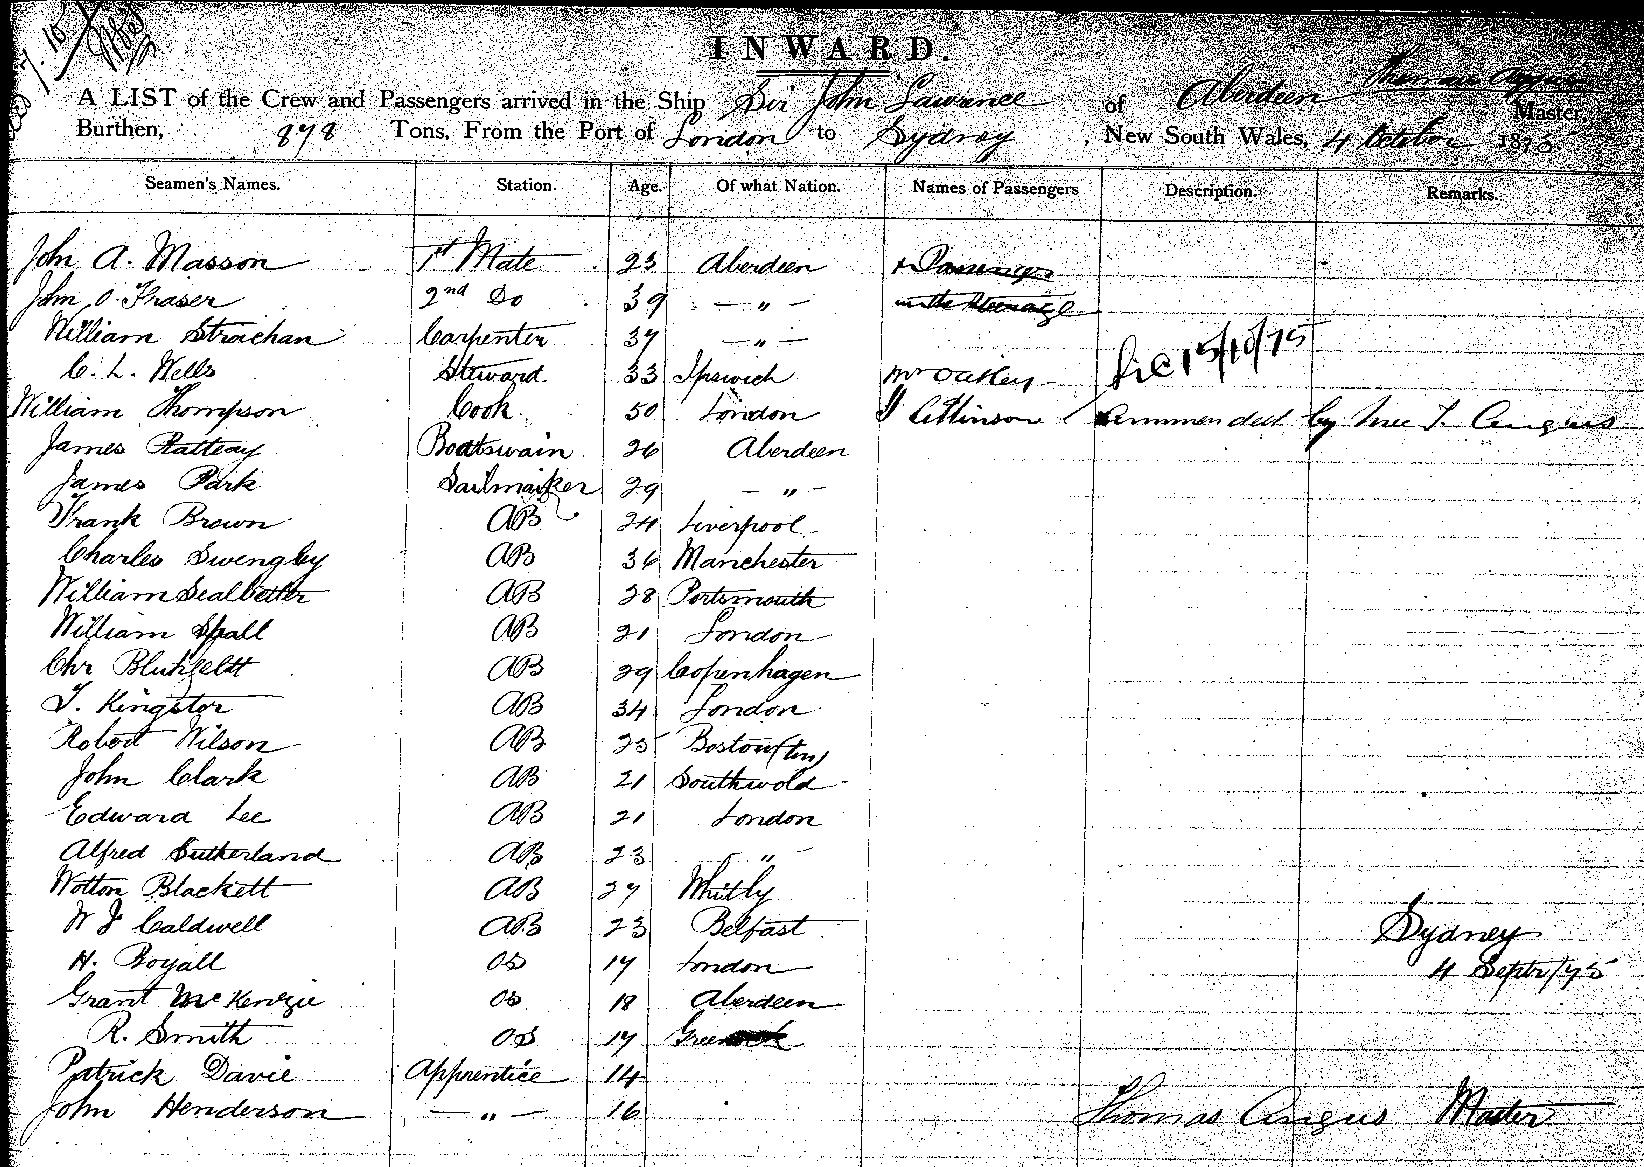 INWARD.
A LIST of the Crew and Passengers arrived in the Ship Sir John Lawrence of Aberdeen Thomas Angus Master,
Burthen, 878 Tons, From the Port of London to Sydney, New South Wales, 4 October 1875
Seamen's Names. Station. Age. Of what Nation. Names of Passengers Description. Remarks.
John A. Masson 1st Mate 23 Aberdeen Passengers
John O. Fraser 2nd Do 39 — " — in the Steerage
William Strachan Carpenter 37 — " —
C. L. Wells Steward 33 Ipswich Mr Oakley 15/10/75
William Thompson Cook 50 London Attinson by me T. Angus
James Rattray Boatswain 26 Aberdeen
James Park Sailmaker 29 — " —
Frank Brown AB 24 Liverpool
Charles Swengley AB 36 Manchester
William AB 28 Portsmouth
William Spall AB 21 London
Chr AB 29 Copenhagen
T. Kingston AB 34 London
Robert Wilson AB 25 Boston
John Clark AB 21 Southwold
Edward Lee AB 21 London
Alfred Sutherland AB 23 — " —
Wotton Blackett AB 27 Whitby
W J Caldwell AB 23 Belfast Sydney
H. Boyall OS 17 London 4 Septr/75
Grant McKenzie OS 18 Aberdeen
R. Smith OS 17
Patrick Davie Apprentice 14
John Henderson — " — 16 Thomas Angus Master